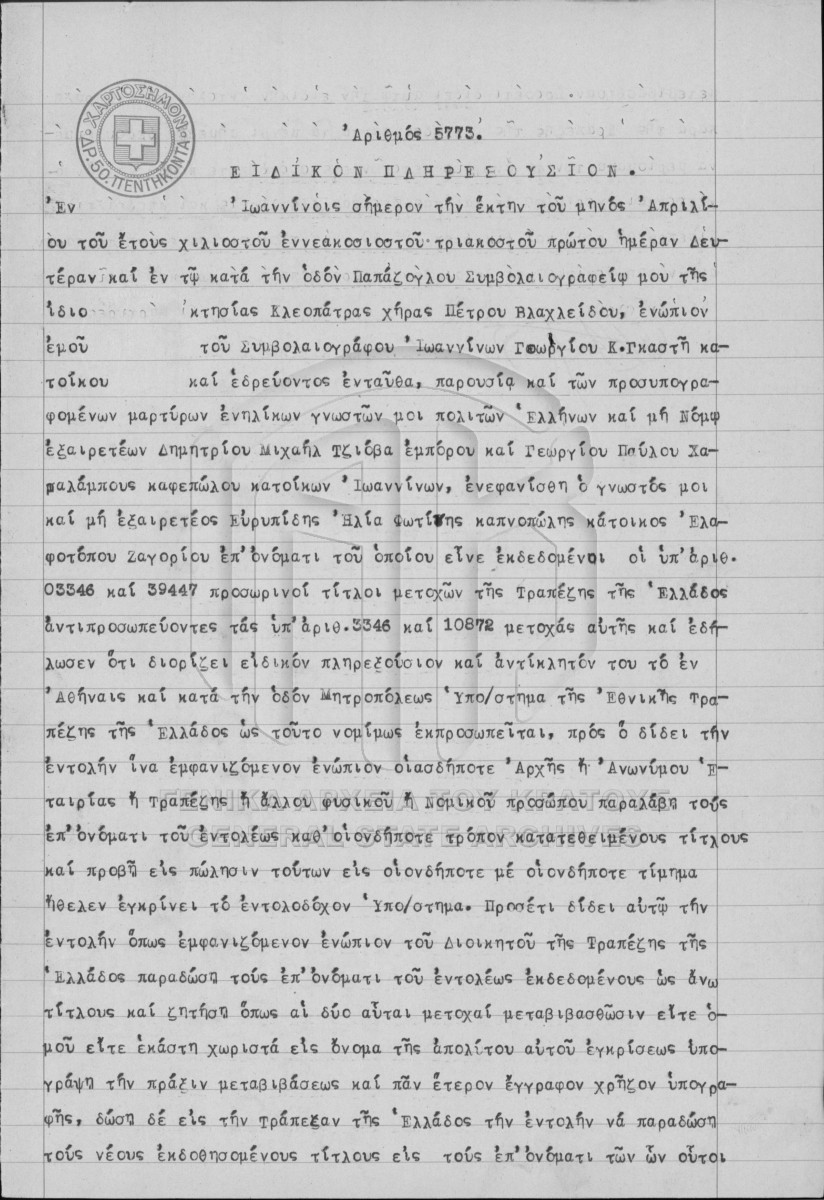 ΧΑΡΤΟΣΗΜΟΝ
ΔΡ. 50. ΠΕΝΤΗΚΟΝΤΑ
Ἀριθμός 5773.
ΕΙΔΙΚΟΝ ΠΛΗΡΕΞΟΥΣΙΟΝ.
Ἐν Ἰωαννίνοις σήμερον τήν ἕκτην τοῦ μηνός Ἀπριλί-
ου τοῦ ἔτους χιλιοστοῦ ἐννεακοσιοστοῦ τριακοστοῦ πρώτου ἡμέραν Δευ-
τέραν καί ἐν τῷ κατά τήν ὁδόν Παπάζογλου Συμβολαιογραφείῳ μου τῆς
ἰδιο κτησίας Κλεοπάτρας χήρας Πέτρου Βλαχλείδου, ἐνώπιον
ἐμοῦ τοῦ Συμβολαιογράφου Ἰωαννίνων Γεωργίου Κ.Γκαστῆ κα-
τοίκου καί ἑδρεύοντος ἐνταῦθα, παρουσίᾳ καί τῶν προσυπογρα-
φομένων μαρτύρων ἐνηλίκων γνωστῶν μοι πολιτῶν Ἑλλήνων καί μή Νόμῳ
ἐξαιρετέων Δημητρίου Μιχαήλ Τζιόβα ἐμπόρου καί Γεωργίου Παύλου Χα-
ραλάμπους καφεπώλου κατοίκων Ἰωαννίνων, ἐνεφανίσθη ὁ γνωστός μοι
καί μή ἐξαιρετέος Εὐρυπίδης Ἠλία Φωτίνης καπνοπώλης κάτοικος Ἐλα-
φοτόπου Ζαγορίου ἐπ'ὀνόματι τοῦ ὁποίου εἶνε ἐκδεδομένοι οἱ ὑπ'ἀριθ.
03346 καί 39447 προσωρινοί τίτλοι μετοχῶν τῆς Τραπέζης τῆς Ἑλλάδος
ἀντιπροσωπεύοντες τάς ὑπ'ἀριθ.3346 καί 10872 μετοχάς αὐτῆς καί ἐδή-
λωσεν ὅτι διορίζει εἰδικόν πληρεξούσιον καί ἀντίκλητόν του τό ἐν
Ἀθήναις καί κατά τήν ὁδόν Μητροπόλεως Ὑπο/στημα τῆς Ἐθνικῆς Τρα-
πέζης τῆς Ἑλλάδος ὡς τοῦτο νομίμως ἐκπροσωπεῖται, πρός ὅ δίδει τήν
ἐντολήν ἵνα ἐμφανιζόμενον ἐνώπιον οἱασδήποτε Ἀρχῆς ἤ Ἀνωνύμου Ἑ-
ταιρίας ἤ Τραπέζης ἤ ἄλλου φυσικοῦ ἤ Νομικοῦ προσώπου παραλάβῃ τούς
ἐπ'ὀνόματι τοῦ ἐντολέως καθ'οἱονδήποτε τρόπον κατατεθειμένους τίτλους
καί προβῇ εἰς πώλησιν τούτων εἰς οἱονδήποτε μέ οἱονδήποτε τίμημα
ἤθελεν ἐγκρίνει τό ἐντολοδόχον Ὑπο/στημα. Προσέτι δίδει αὐτῷ τήν
ἐντολήν ὅπως ἐμφανιζόμενον ἐνώπιον τοῦ Διοικητοῦ τῆς Τραπέζης τῆς
Ἑλλάδος παραδώσῃ τούς ἐπ'ὀνόματι τοῦ ἐντολέως ἐκδεδομένους ὡς ἄνω
τίτλους καί ζητήσῃ ὅπως αἱ δύο αὗται μετοχαί μεταβιβασθῶσιν εἴτε ὁ-
μοῦ εἴτε ἑκάστη χωριστά εἰς ὄνομα τῆς ἀπολίτου αὐτοῦ ἐγκρίσεως ὑπο-
γράψῃ τήν πράξιν μεταβιβάσεως καί πᾶν ἕτερον ἔγγραφον χρῆζον ὑπογρα-
φῆς, δώσῃ δέ εἰς τήν Τράπεζαν τῆς Ἑλλάδος τήν ἐντολήν νά παραδώσῃ
τούς νέους ἐκδοθησομένους τίτλους εἰς τούς ἐπ'ὀνόματι τῶν ὧν οὗτοι
ΓΕΝΙΚΑ ΑΡΧΕΙΑ ΤΟΥ ΚΡΑΤΟΥΣ
GENERAL STATE ARCHIVES